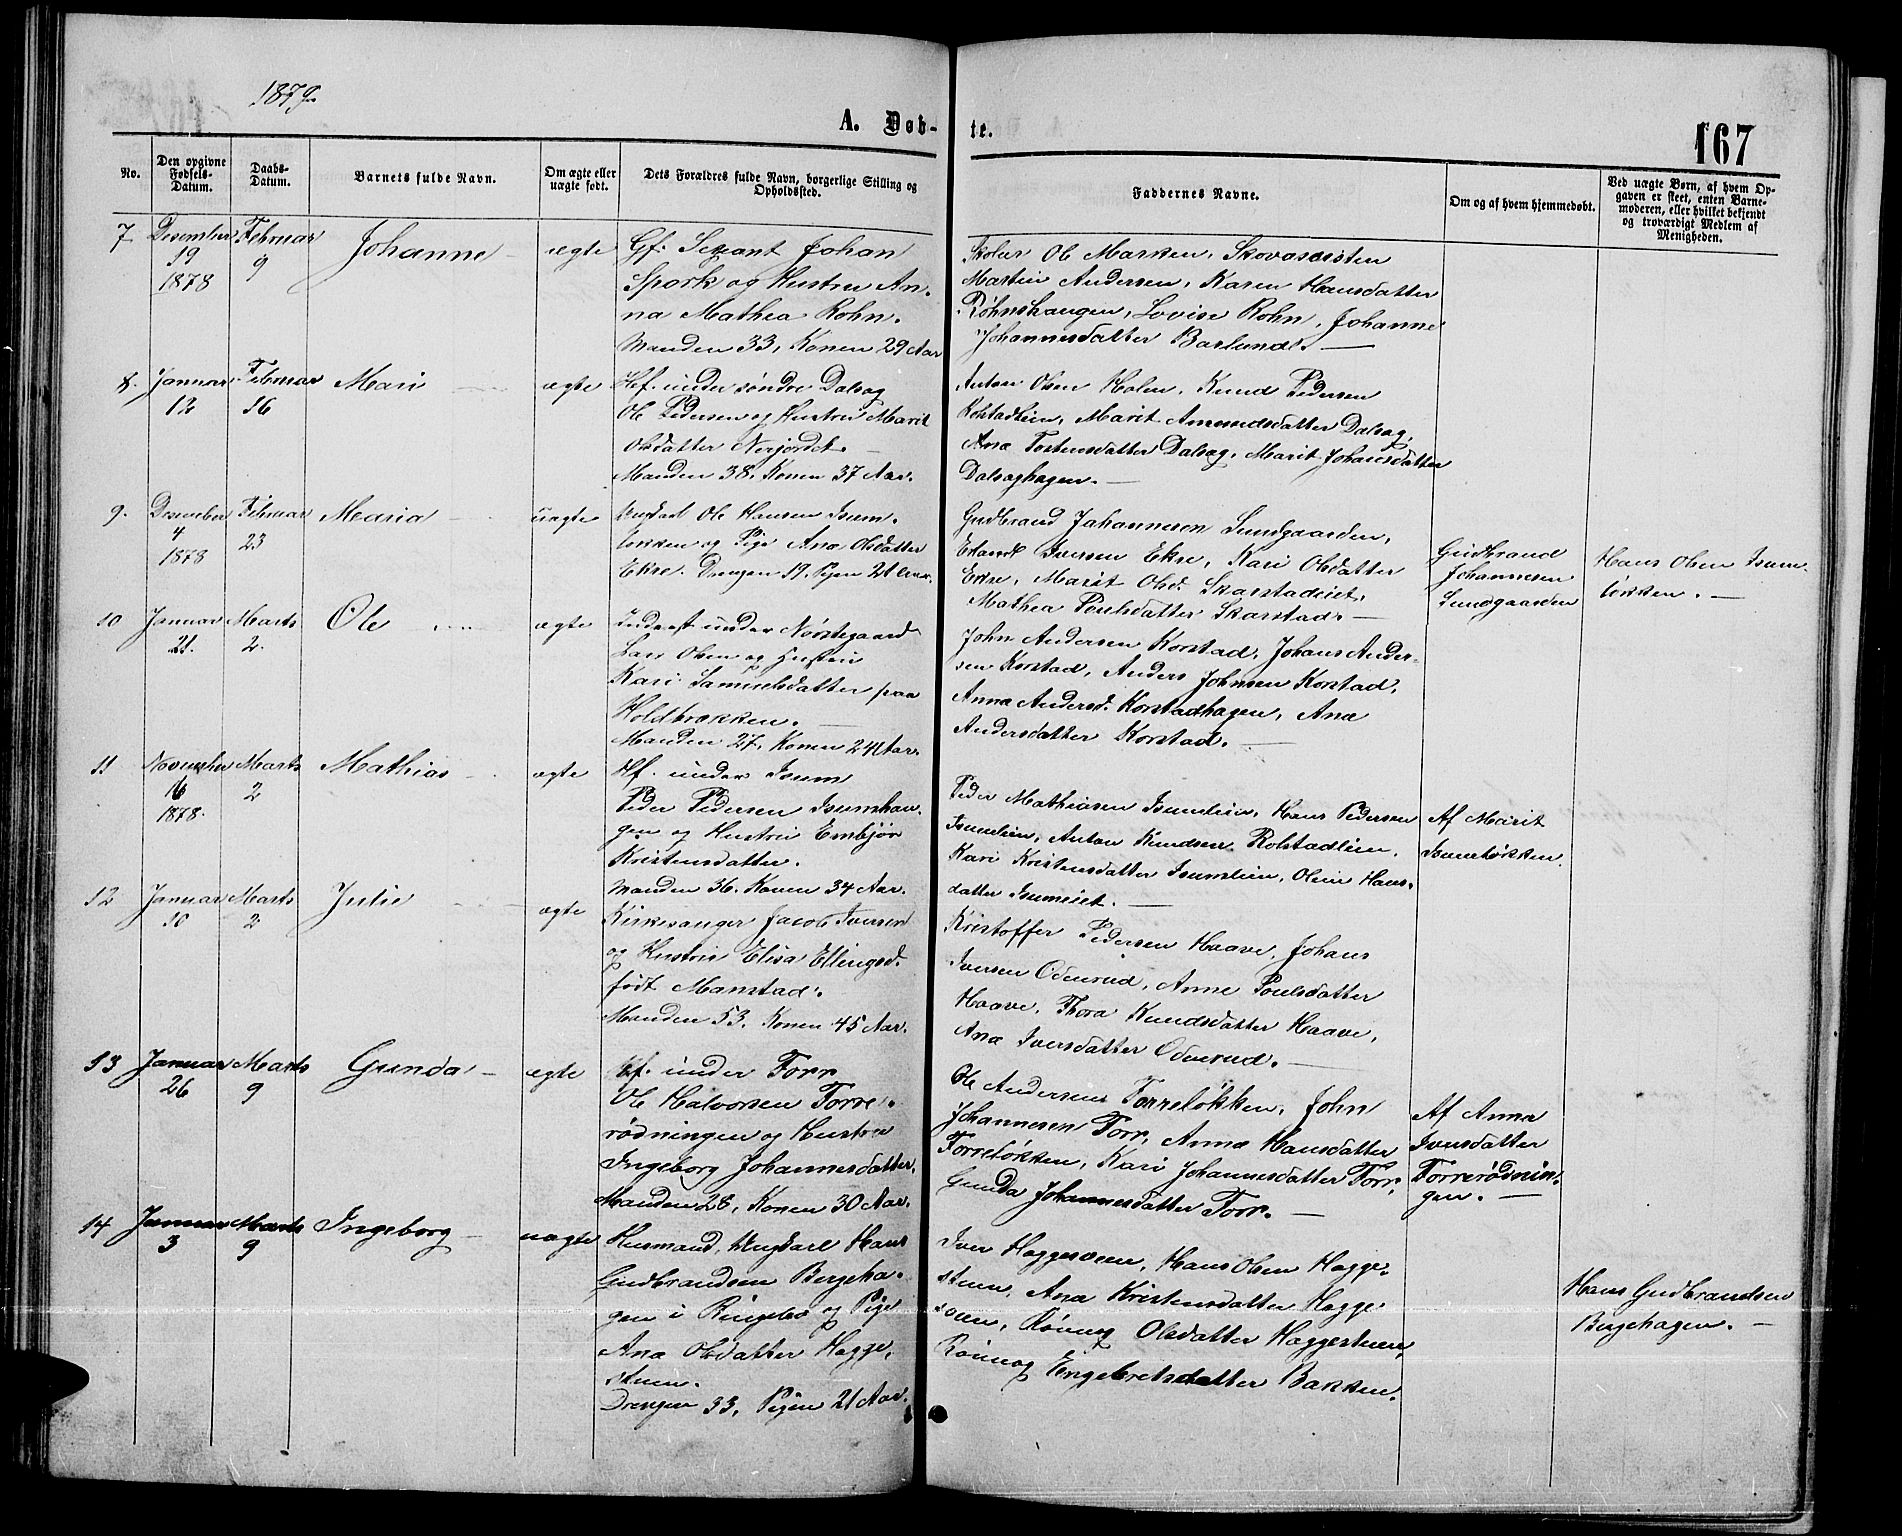 1879.
A. Døb-
te.
167
No.
Den opgivne Fødsels-Datum.
Daabs-Datum.
Barnets fulde Navn.
Om ægte eller uægte født.
Dets Forældres fulde Navn, borgerlige Stilling og Opholdssted.
Faddernes Navne.
Om og af hvem hjemmedøbt.
Ved uægte Børn, af hvem Op-
gaven er skeet, enten Barne-
moderen, eller hvilket bekjendt
og troværdigt Medlem af
Menigheden.
7. Desember 19 1878
Februar 9
Johanne
ægte
Gf. Sersjant Johan
Spork og Hustru An-
na Mathea Rohn.
Manden 33, Konen 29 Aar
Skolelr Ole Marken,
Martin Andersen, Karen Hansdatter
Røhnshaugen, Lovise Rohn, Johanne
Johannesdatter Baslunde.
8. Januar 12
Februar 16
Mari
ægte
Hf. under søndre Dalsæg
Ole Pedersen og Hustru Marit
Olsdatter Nerjordet.
Manden 38, Konen 37 Aar.
Anton Olsen Holen, Knud Pedersen
Rolstadlien, Marit Amundsdatter Dalsæg,
Ana Tostensdatter Dalsæg, Marit Johansdatter
Dalsæghagen.
9. Desember 4 1878
Februar 23
Maria
uægte
Ungkarl Ole Hansen Isum-
løkken og Pige Ana Olsdatter
Ekre. Drengen 19, Pigen 21 Aar.
Gudbrand Johannesen Sundgaarden,
Erlandt Iversen Ekre, Kari Olsdatter
Ekre, Marit Olsd. Skarstadeiet,
Mathea Poulsdatter Skarstad.
Gudbrand
Johannesen
Sundgaarden
Hans Olsen Isum-
løkken.
10 Januar 21.
Marts 2.
Ole
ægte
Inderst under Nørstegaard
Lars Olsen og Hustru
Kari Samuelsdatter paa
Holdbrækken.
Manden 27, Konen 24 Aar.
John Andersen Korstad, Johans Ander-
sen Korstad, Anders Johnsen Korstad,
Anna Andersd. Korstadhagen, Ana
Andersdatter Korstad.
11 November 16 1878.
Marts 2
Mathias
ægte
Hf. under Isum
Peder Pedersen Isumhau-
gen og Hustru Embjør
Kristensdatter.
Manden 36. Konen 34 Aar.
Peder Mathiasen Isumlien, Hans Pedersen
Isumlien, Anton Knudsen Rolstadlien,
Kari Kristensdatter Isumlien, Oline Hans-
datter Isumeiet.
Af Marit
Isumløkken.
12 Januar 10
Marts 2
Julie
ægte
Kirkesanger Jacob Iversen
og Hustru Elisa Ellingsd.
født Manstad.
Manden 53, Konen 45 Aar.
Kristoffer Pedersen Haave, Johans
Iversen Odenrud, Anne Poulsdatter
Haave, Thora Knudsdatter Haave,
Ana Iversdatter Odenrud.
13 Januar 26
Marts 9
Gunda
ægte
Hf. under Forr
Ole Halvorsen Forre-
rødningen og Hustru
Ingeborg Johannesdatter.
Manden 28, Konen 30 Aar.
Ole Andersen Forreløkken, John
Johannesen Forr, Anna Hansdatter
Forreløkken, Kari Johannesdatter Forr,
Gunda Johannesdatter Forr.
Af Anna
Iversdatter
Forrerødnin-
gen.
14 Januar 3
Marts 9
Ingeborg
uægte
Husmand, Ungkarl Hans
Gudbrandsen Bergeha-
gen i Ringebo og Pige
Ana Olsdatter Hagge-
stuen.
Drengen 33, Pigen 21 Aar.
Iver Haggesveen, Hans Olsen Hagge-
stuen, Ana Kristensdatter Hagge-
sveen, Rønnog Olsdatter Haggestuen,
Rønnog Engebretsdatter Bakken.
Hans Gudbrandsen
Bergehagen.